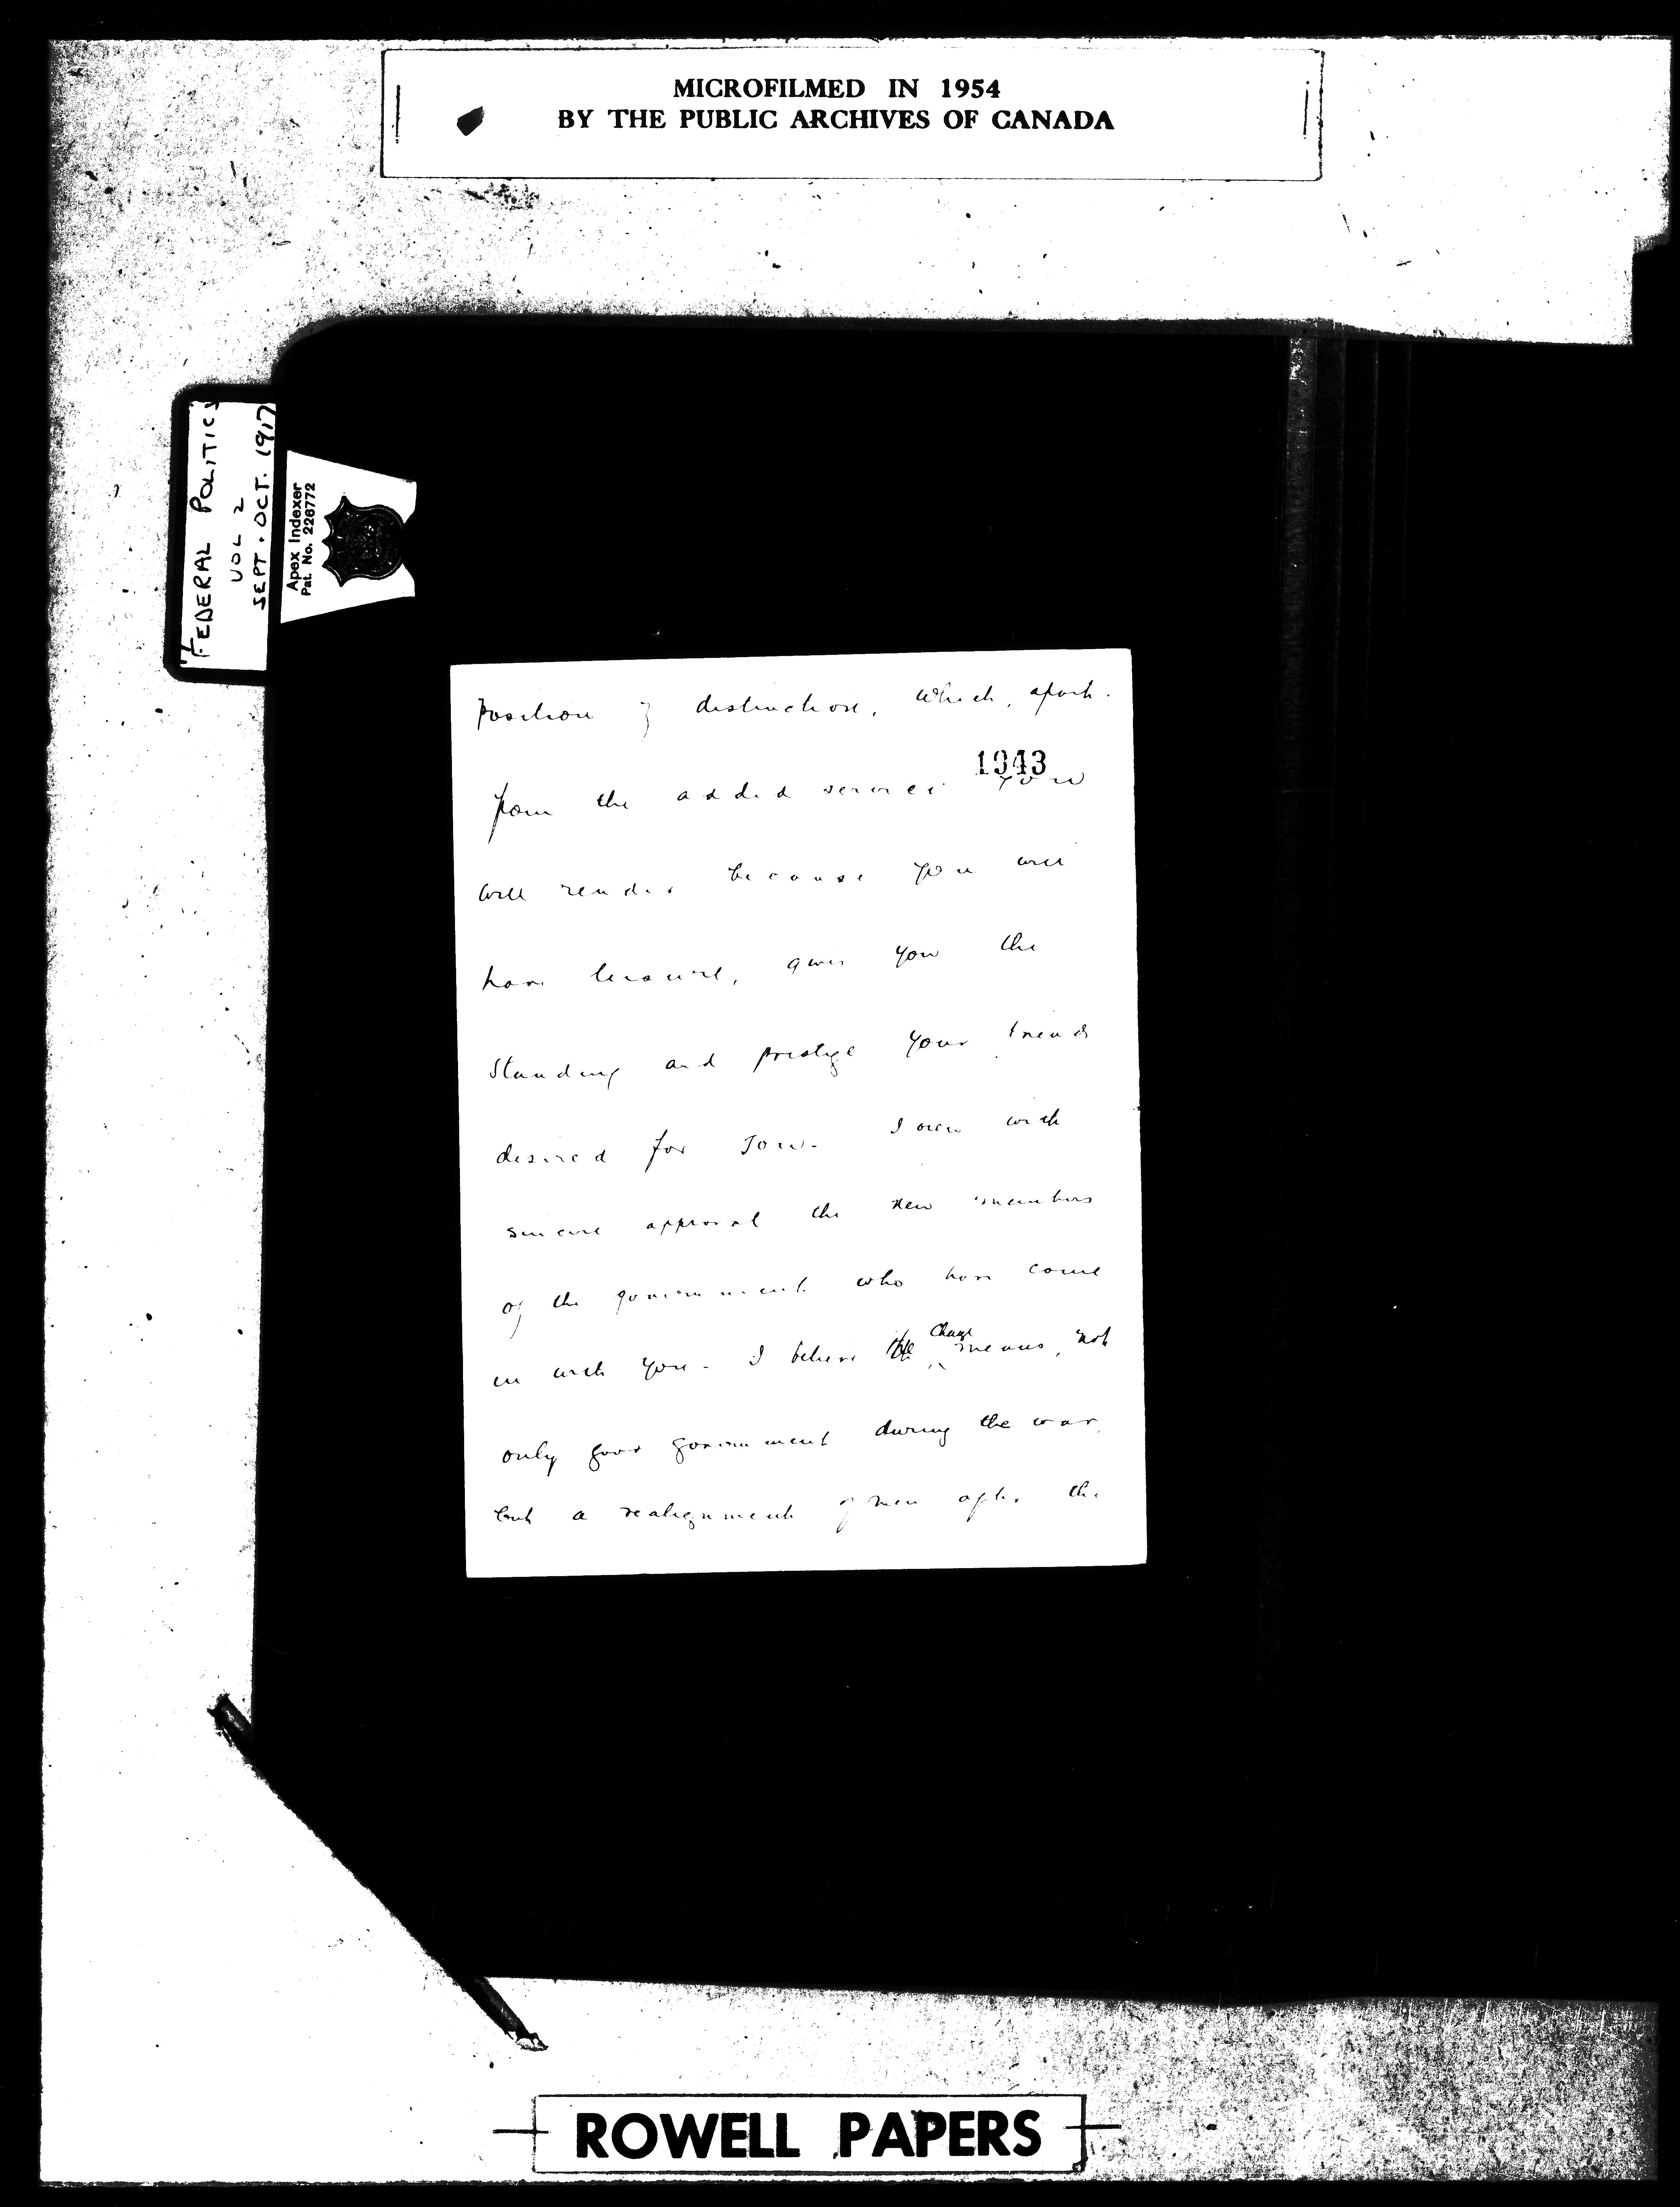 MICROFILMED IN 1954
BY THE PUBLIC ARCHIVES OF CANADA
FEDERAL POLITICS
VOL 2
SEPT. OCT. 1917
Apex Indexer
Pat. No. 226772
position of distinction, which, apart
1943
from the added services you
will render because you will
have leisure, gives you the
standing and prestige your friends
desired for you. I view with
sincere approval the new members
of the government who have come
in with you - I believe the change means, not
only good government during the war,
but a realignment of men after the
ROWELL PAPERS